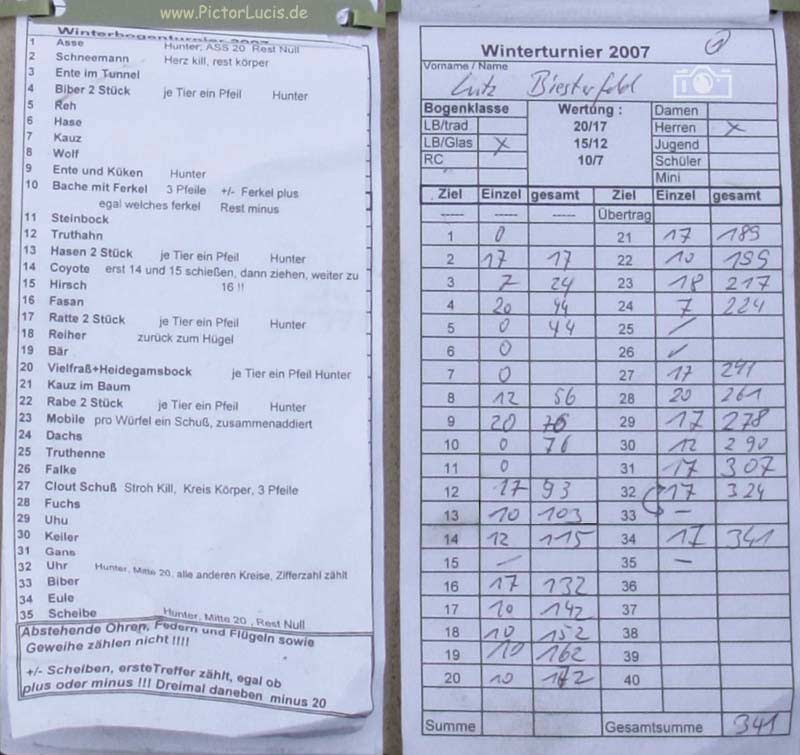 www.PictorLucis.de
Winterbogenturnier 2007
1 Asse Hunter, ASS 20 Rest Null
2 Schneemann Herz kill, rest körper
3 Ente im Tunnel
4 Biber 2 Stück je Tier ein Pfeil Hunter
5 Reh
6 Hase
7 Kauz
8 Wolf
9 Ente und Küken Hunter
10 Bache mit Ferkel 3 Pfeile +/- Ferkel plus
egal welches ferkel Rest minus
11 Steinbock
12 Truthahn
13 Hasen 2 Stück je Tier ein Pfeil Hunter
14 Coyote erst 14 und 15 schießen, dann ziehen, weiter zu
15 Hirsch 16 !!
16 Fasan
17 Ratte 2 Stück je Tier ein Pfeil Hunter
18 Reiher zurück zum Hügel
19 Bär
20 Vielfraß+Heidegamsbock je Tier ein Pfeil Hunter
21 Kauz im Baum
22 Rabe 2 Stück je Tier ein Pfeil Hunter
23 Mobile pro Würfel ein Schuß, zusammenaddiert
24 Dachs
25 Truthenne
26 Falke
27 Clout Schuß Stroh Kill, Kreis Körper, 3 Pfeile
28 Fuchs
29 Uhu
30 Keiler
31 Gans
32 Uhr Hunter, Mitte 20, alle anderen Kreise, Zifferzahl zählt
33 Biber
34 Eule
35 Scheibe Hunter, Mitte 20 , Rest Null
Abstehende Ohren, Federn und Flügeln sowie
Geweihe zählen nicht !!!!
+/- Scheiben, ersteTreffer zählt, egal ob
plus oder minus !!! Dreimal daneben minus 20
Winterturnier 2007
Vorname / Name
Lutz Biesterfeld
Bogenklasse Wertung : Damen
LB/trad 20/17 Herren x
LB/Glas x 15/12 Jugend
RC 10/7 Schüler
Mini
Ziel Einzel gesamt Ziel Einzel gesamt
----- ----- ----- Übertrag
1 0 21 17 189
2 17 17 22 10 199
3 7 24 23 18 217
4 20 44 24 7 224
5 0 44 25 /
6 0 26
7 0 27 17 241
8 12 56 28 20 261
9 20 76 29 17 278
10 0 76 30 12 290
11 0 31 17 307
12 17 93 32 17 324
13 10 103 33 –
14 12 115 34 17 341
15 – 35 –
16 17 132 36
17 10 142 37
18 10 152 38
19 10 162 39
20 10 172 40
Summe Gesamtsumme 341